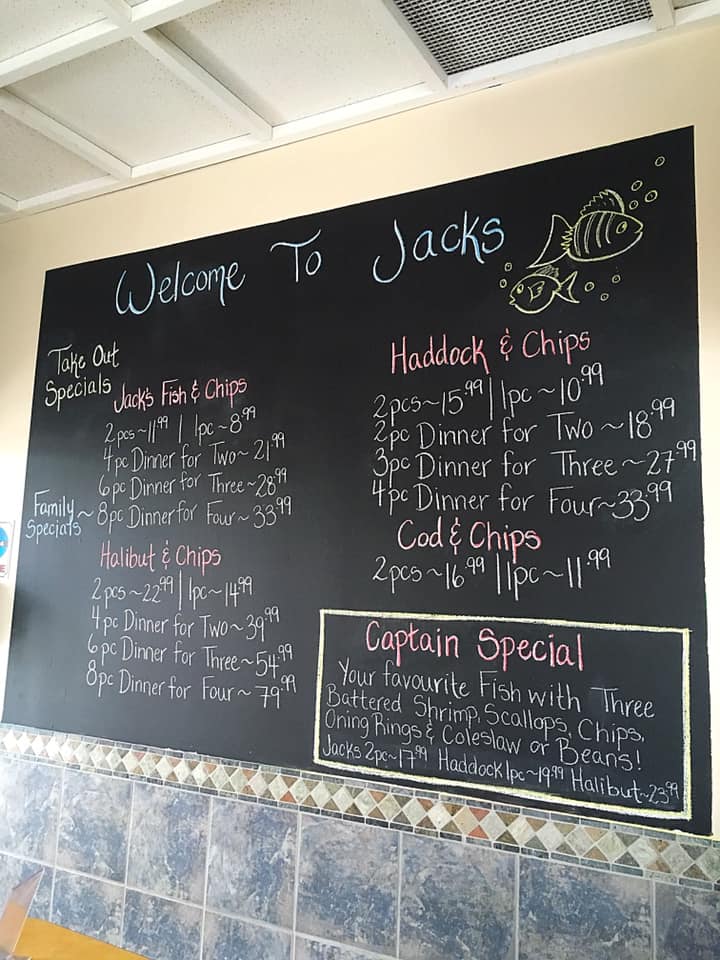 Welcome To Jacks
Take Out
Specials
Jack's Fish & Chips
2pcs~11.99 | 1pc~8.99
4pc Dinner for Two~21.99
6pc Dinner for Three~28.99
Family
Specials ~
8pc Dinner for Four~33.99
Halibut & Chips
2pcs~22.99 | 1pc~14.99
4pc Dinner for Two~39.99
6pc Dinner for Three~54.99
8pc Dinner for Four~79.99
Haddock & Chips
2pcs~15.99 | 1pc~10.99
2pc Dinner for Two~18.99
3pc Dinner for Three~27.99
4pc Dinner for Four~33.99
Cod & Chips
2pcs~16.99 | 1pc~11.99
Captain Special
Your favourite Fish with Three
Battered Shrimp, Scallops, Chips,
Oning Rings & Coleslaw or Beans!
Jacks 2pc~17.99 Haddock 1pc~19.99 Halibut~23.99